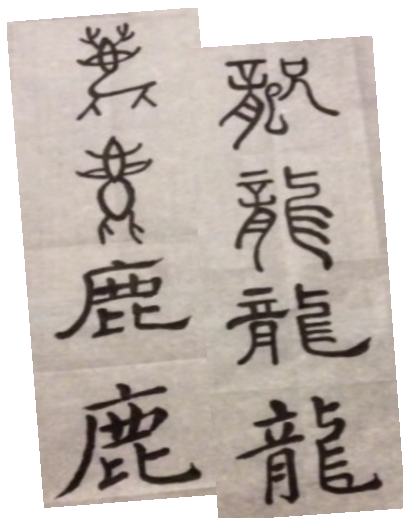 龍龍龍龍
鹿鹿鹿